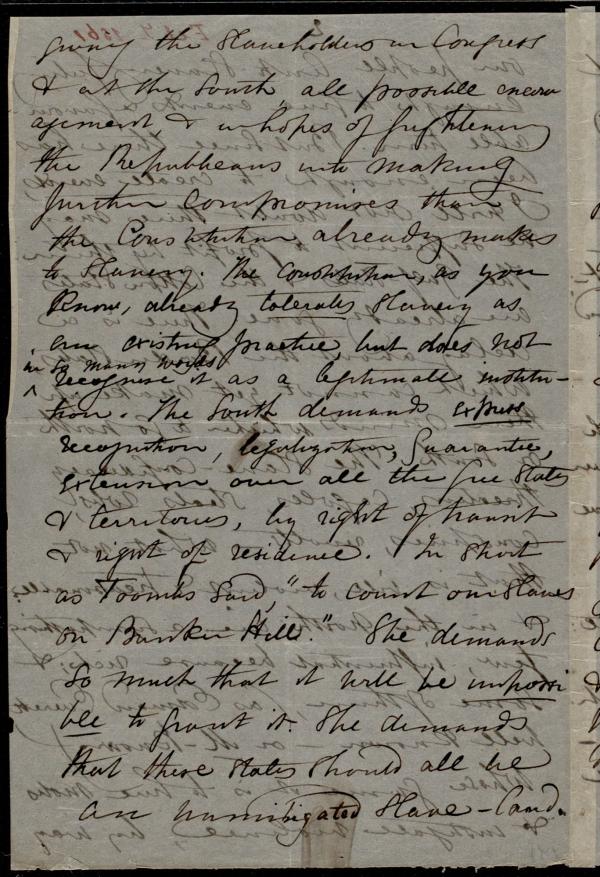 giving the Slaveholders in Congress
& at the South all possible encour
agement, & in hopes of frightening
the Republicans into making
further compromises than
the Constitution already makes
to Slavery. The Constitution, as you
know, already tolerates Slavery as
an existing practice, but does not
in so many words
recognise it as a legitimate institu-
tion. The South demands express
recognition, legalization, guarantee,
extension over all the free States
& territories, by right of transit
& right of residence. In short
as Toombs said, "to count our Slaves
on Bunker Hill." She demands
so much that it will be impossi
ble to grant it. She demands
that these States should all be
an unmitigated Slave-Land.